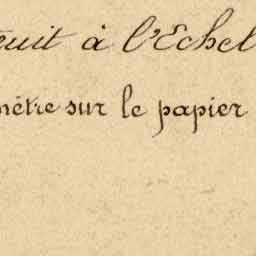 à l'Echel
mètre sur le papier